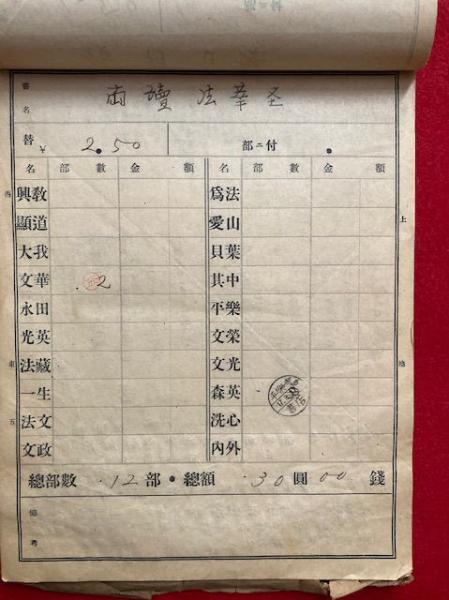 書名 両讀法華圣
替 ¥ 2.50 部ニ付
名 部數 金額 名 部數 金額
興教 爲法
顯道 愛山
大我 貝葉
文華 2 其中
永田 平樂
光英 文榮
法藏 文光
一生 森英
法文 洗心
文政 內外
總部數 12部 總額 30圓00錢
備考